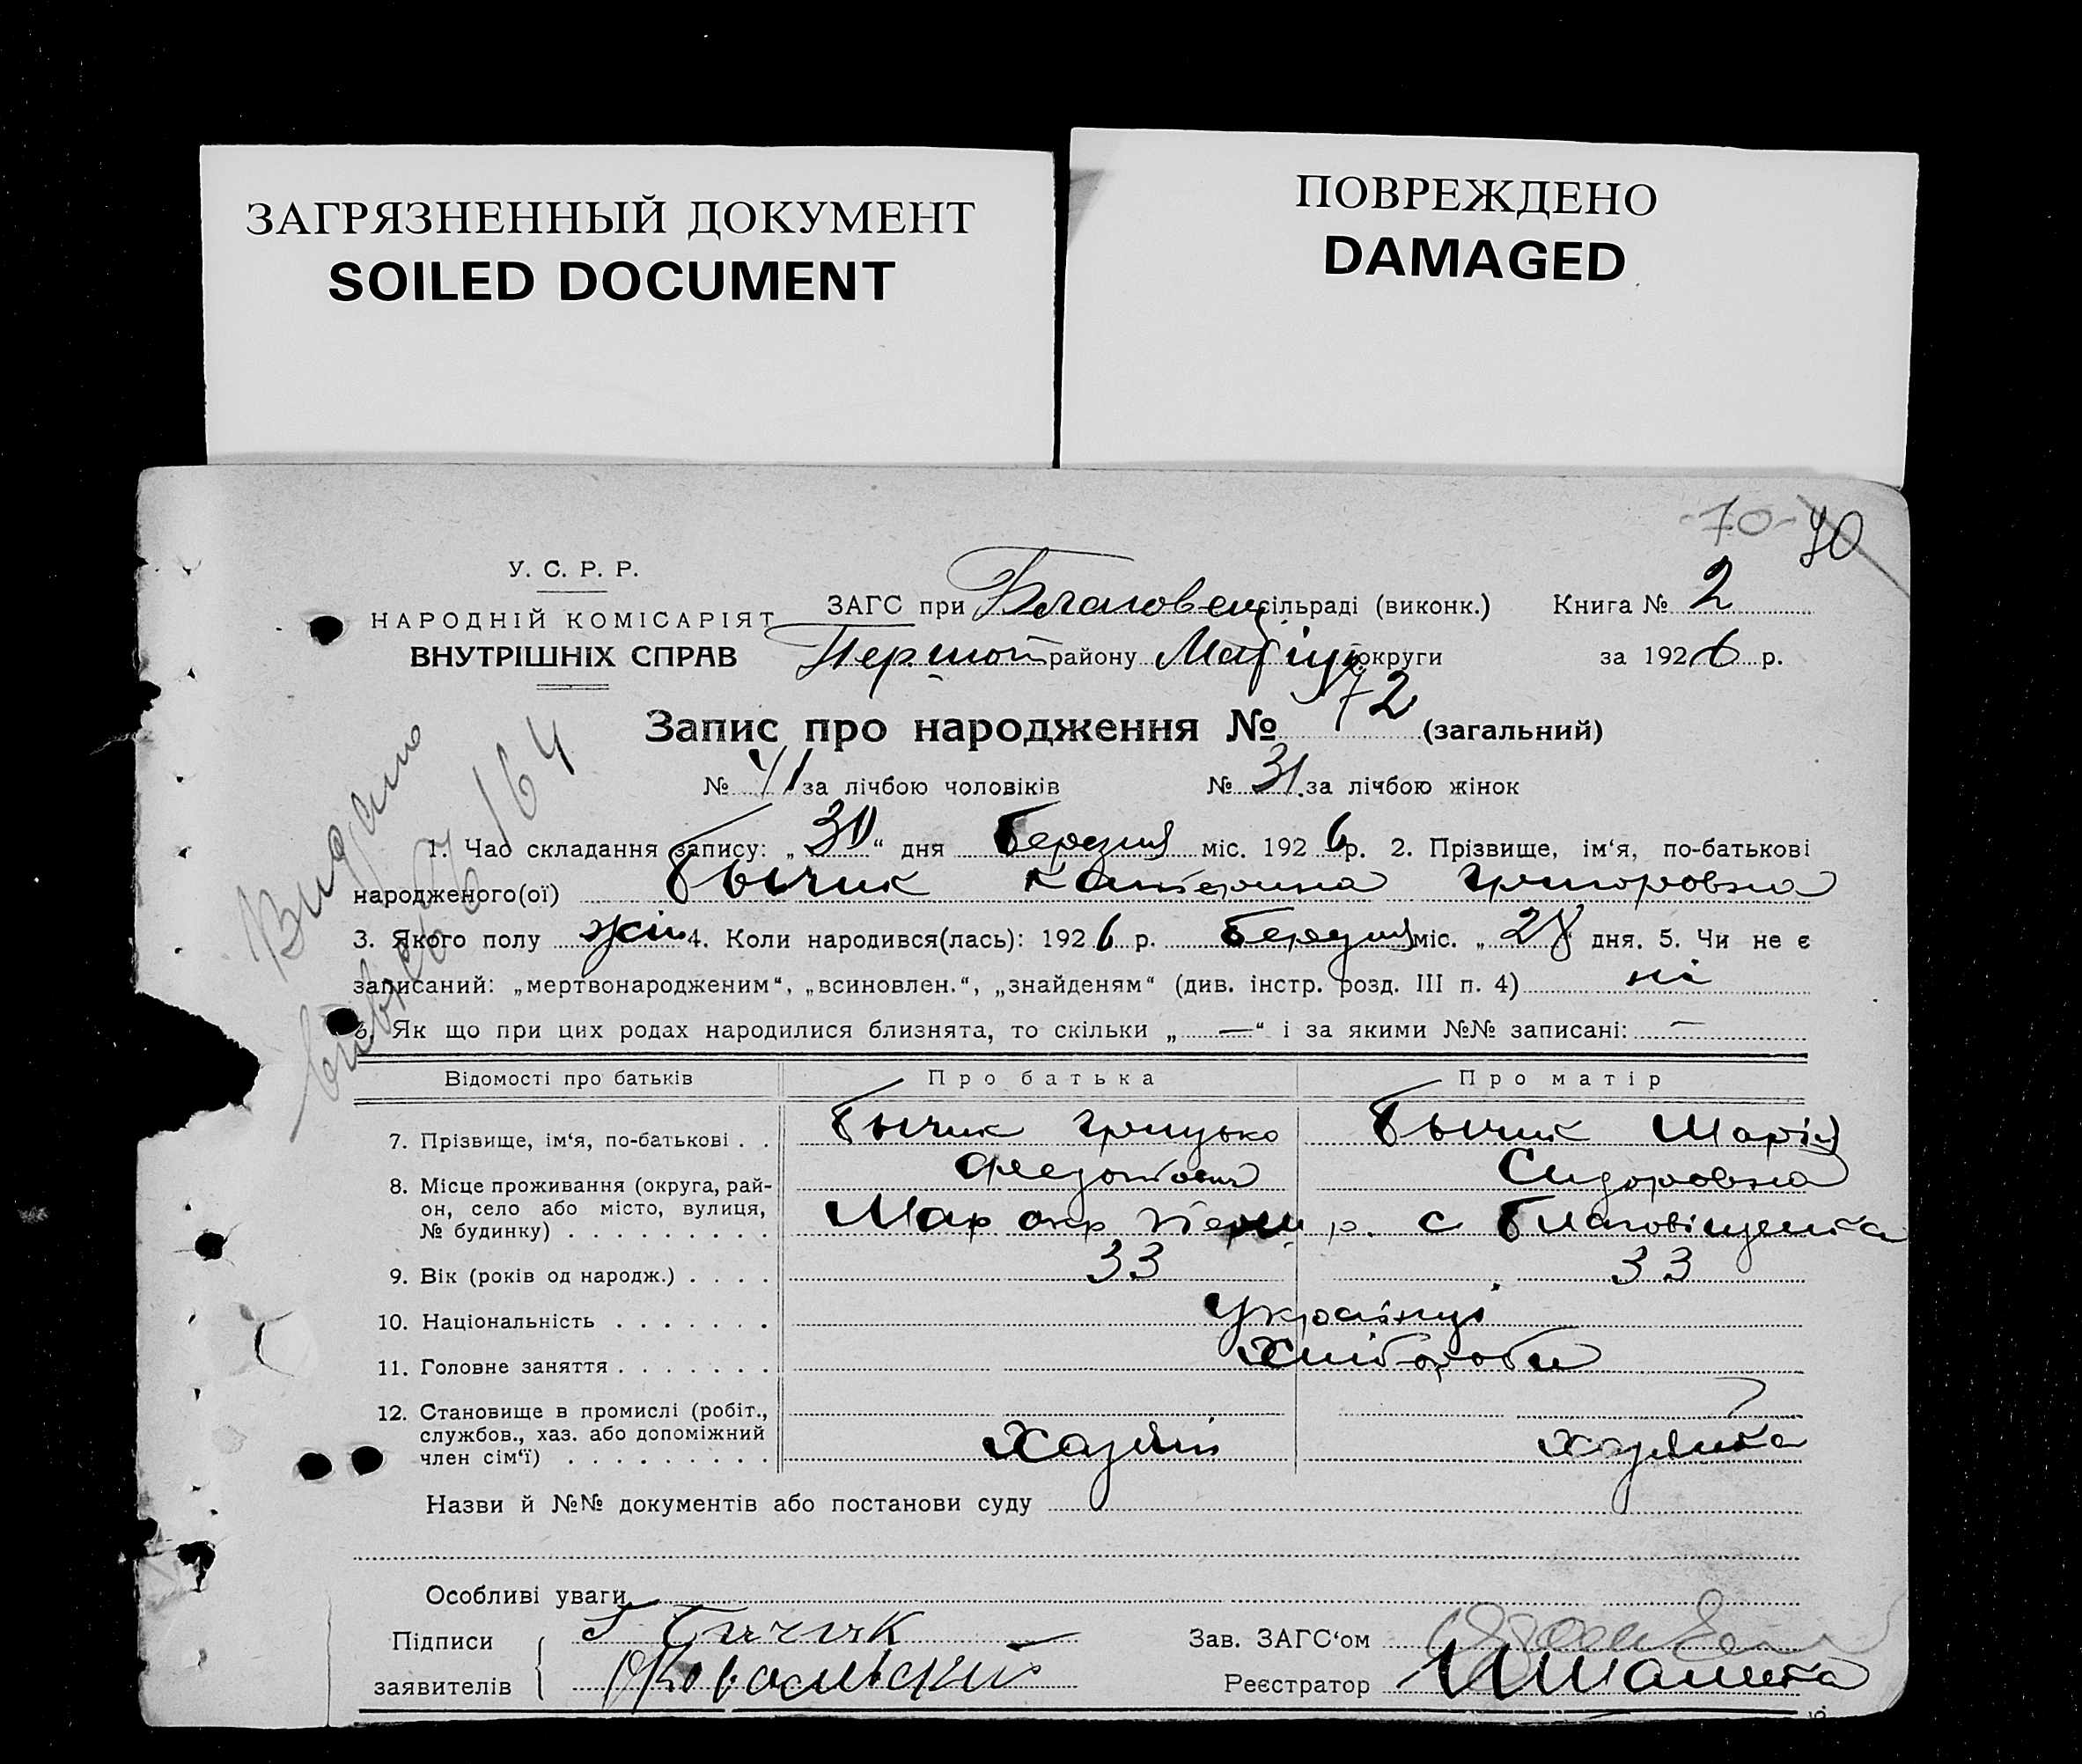 ЗАГРЯЗНЕННЫЙ ДОКУМЕНТ
SOILED DOCUMENT
ПОВРЕЖДЕНО
DAMAGED
-70- 70
У. С. Р. Р.
НАРОДНІЙ КОМІСАРІЯТ
ВНУТРІШНІХ СПРАВ
ЗАГС при Благовещ сільраді (виконк.) Книга № 2
Першот району Маріуп округи за 1926 р.
Запис про народження № 72 (загальний)
№ 41 за лічбою чоловіків № 31 за лічбою жінок
1. Час складання запису: „30“ дня березня міс. 1926 р. 2. Прізвище, ім‘я, по-батькові
народженого(ої) Бычик Катерина Григоровна
3. Якого полу жін 4. Коли народився(лась): 1926 р. березня міс. „28“ дня. 5. Чи не є
записаний: „мертвонародженим“, „всиновлен.“, „знайденям“ (див. інстр. розд. III п. 4) ні
6. Як що при цих родах народилися близнята, то скільки „—“ і за якими №№ записані: —
Відомості про батьків Про батька Про матір
7. Прізвище, ім‘я, по-батькові . . Бычик Грицько Бычик Марія
Федотович Сидоровна
8. Місце проживання (округа, рай-
он, село або місто, вулиця,
№ будинку) . . . . . . . . . Мар окр Перш р. с Благовіщенка
9. Вік (років од народж.) . . . . 33 33
10. Національність . . . . . . . Українці
11. Головне заняття . . . . . . . Хлібороби
12. Становище в промислі (робіт.,
службов., хаз. або допоміжний
член сім‘ї) . . . . . . . . . Хазяїн хазяйка
Назви й №№ документів або постанови суду
Особливі уваги
Підписи Г Бичик
заявителів Ковальський
Зав. ЗАГС‘ом
Реєстратор
Видано
164